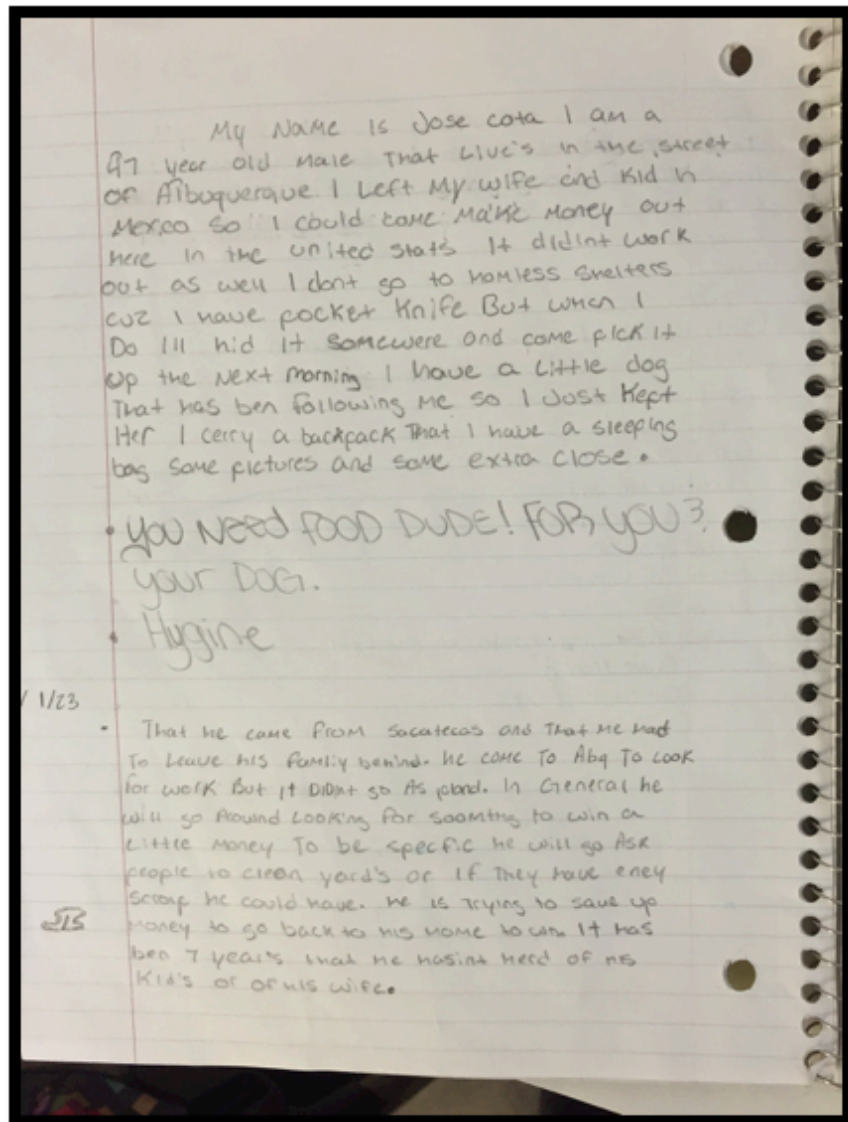 My Name is Jose cota I am a
47 year old male That Live's in the street
of Albuquerque. I Left My wife and Kid in
Mexico so I could come Make Money out
here in the united stats It didint work
out as well I dont go to homless shelters
cuz I have pocket Knife But when I
Do I'll hid It somewere and come pick it
up the Next morning I have a Little dog
That has ben following me so I Just Kept
Her I cerry a backpack That I have a sleeping
bag some pictures and some extra close.
• you Need FOOD DUDE! FOR you?
your DOG.
• Hygine
1/23
• That he came from Sacatecas and That He Had
To Leave his Famliy behind. he come To Abq To Look
for work But it DiDint go As pland. In General he
will go Around Looking for soomting to win a
Little Money To be specfic he will go Ask
people to clean yard's or If They have eney
scrap he could have. He is Trying to save up
Money to go back to his home town. It has
ben 7 year's that he hasint Herd of his
Kid's or of his wife.